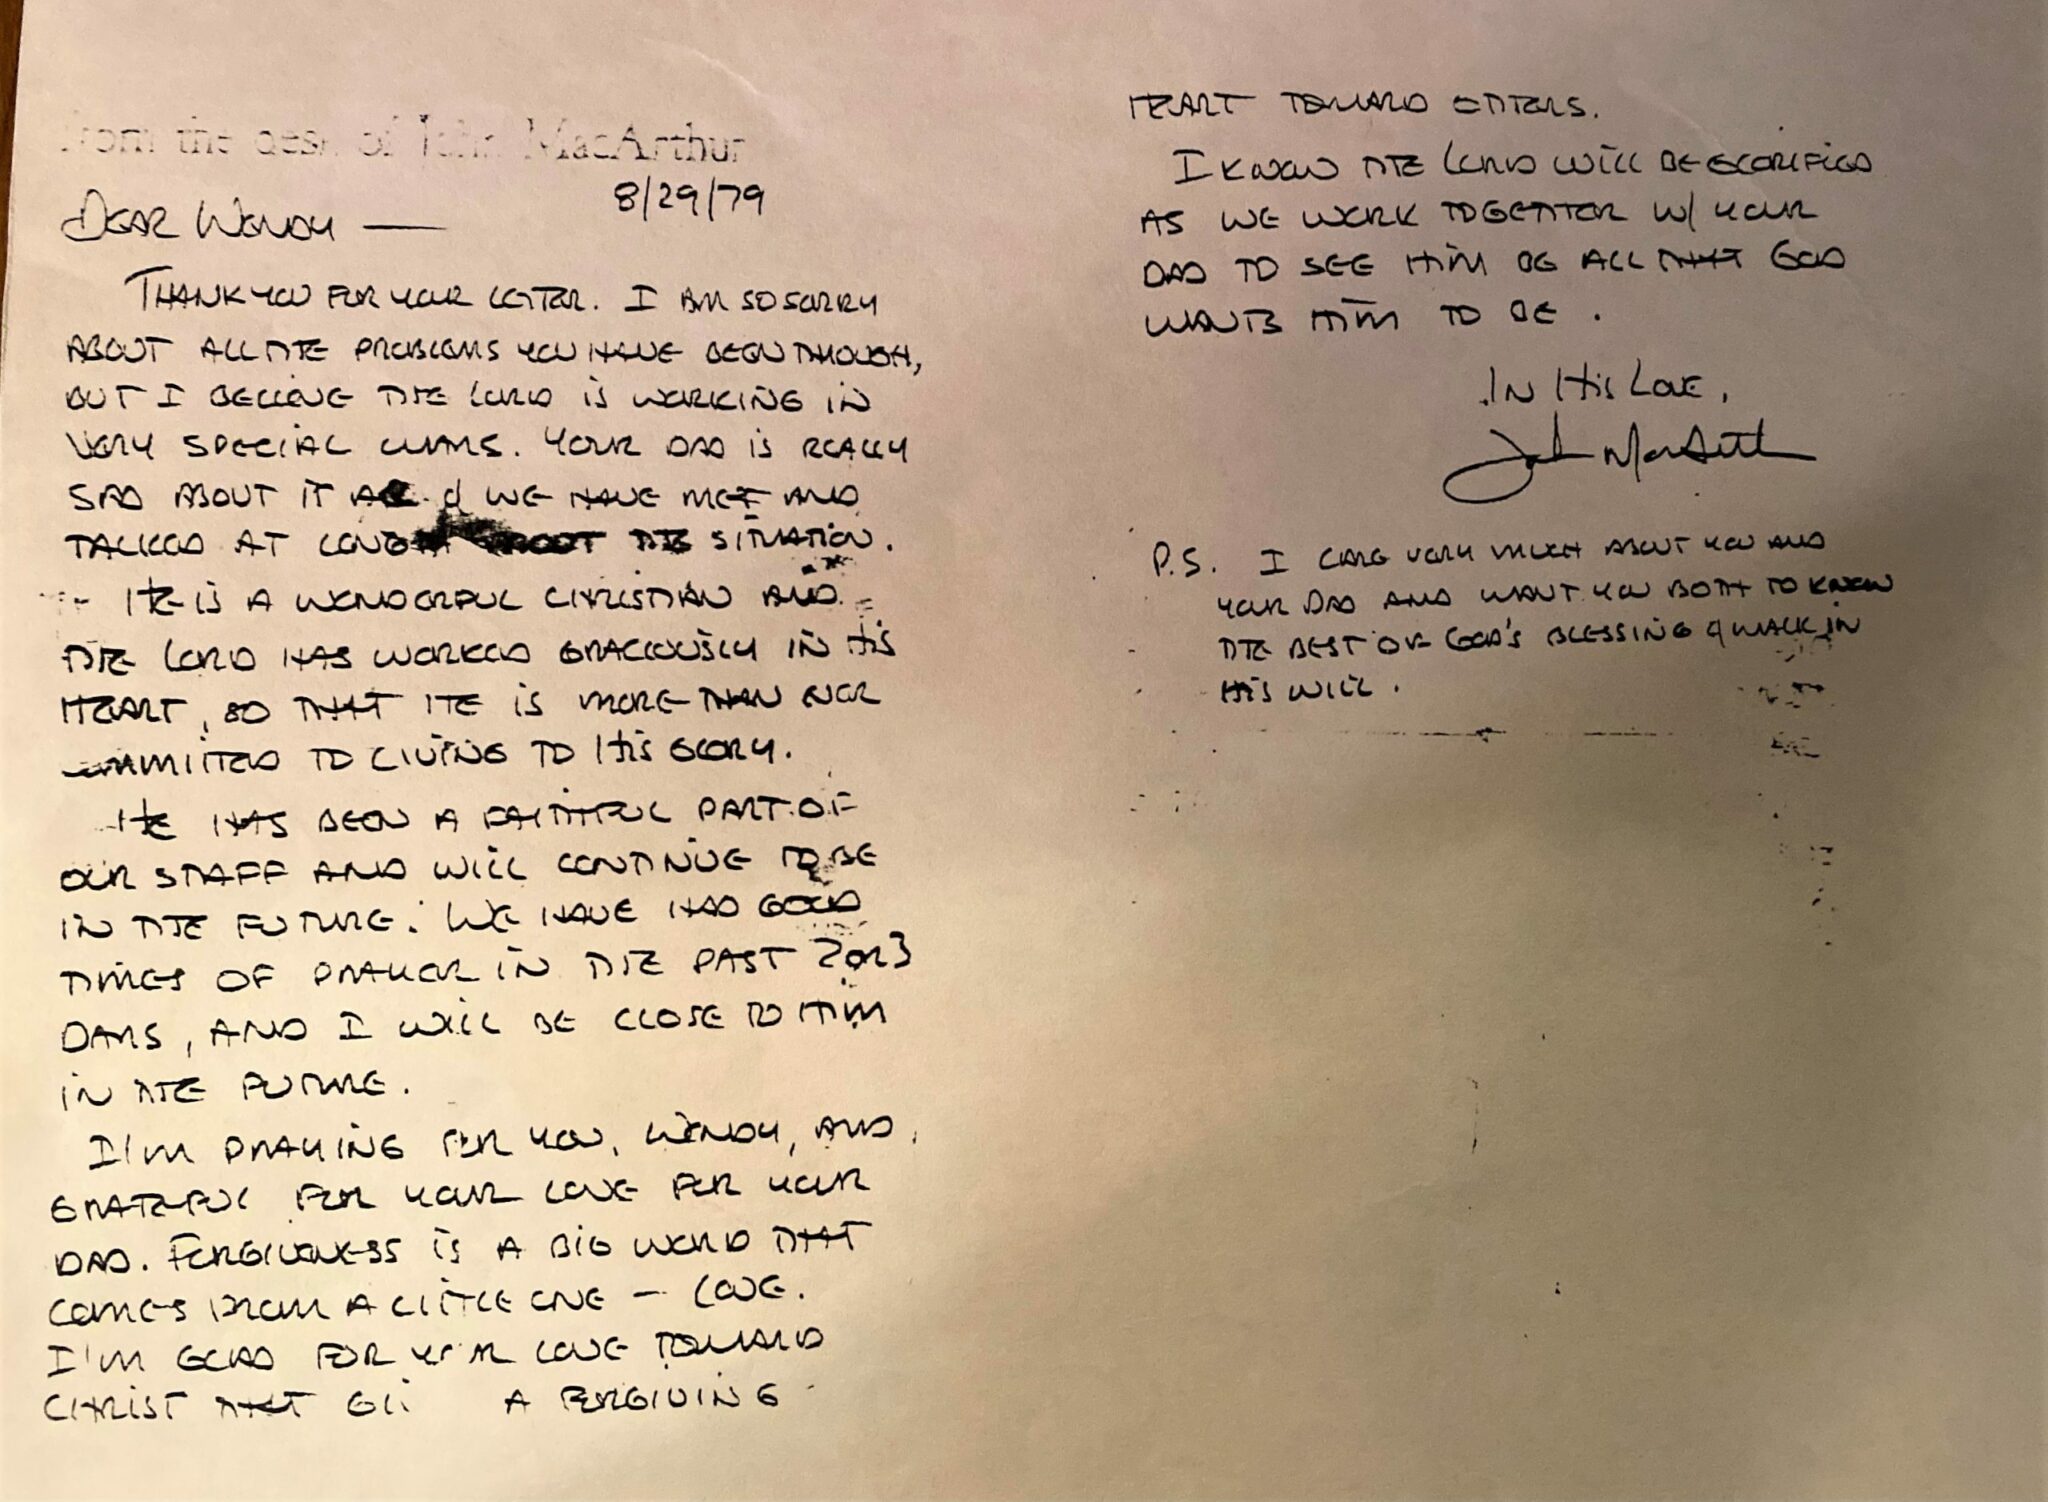 From the desk of John MacArthur
8/29/79
DEAR WENDY —
THANK YOU FOR YOUR LETTER. I AM SO SORRY
ABOUT ALL THE PROBLEMS YOU HAVE BEEN THOUGH,
BUT I BELIEVE THE LORD IS WORKING IN
VERY SPECIAL WAYS. YOUR DAD IS REALLY
SAD ABOUT IT ALL & WE HAVE MET AND
TALKED AT LENGTH ABOUT THE SITUATION.
HE IS A WONDERFUL CHRISTIAN AND
THE LORD HAS WORKED GRACIOUSLY IN HIS
HEART, SO THAT HE IS MORE THAN EVER
COMMITTED TO LIVING TO HIS GLORY.
HE HAS BEEN A FAITHFUL PART OF
OUR STAFF AND WILL CONTINUE TO BE
IN THE FUTURE. WE HAVE HAD GOOD
TIMES OF PRAYER IN THE PAST 2 OR 3
DAYS, AND I WILL BE CLOSE TO HIM
IN THE FUTURE.
I'M PRAYING FOR YOU, WENDY, AND
GRATEFUL FOR YOUR LOVE FOR YOUR
DAD. FORGIVENESS IS A BIG WORD THAT
COMES FROM A LITTLE ONE — LOVE.
I'M GLAD FOR YOUR LOVE TOWARD
CHRIST THAT A FORGIVING
HEART TOWARD OTHERS.
I KNOW THE LORD WILL BE GLORIFIED
AS WE WORK TOGETHER W/ YOUR
DAD TO SEE HIM BE ALL THAT GOD
WANTS HIM TO BE.
IN HIS LOVE,
John MacArthur
P.S. I CARE VERY MUCH ABOUT YOU AND
YOUR DAD AND WANT YOU BOTH TO KNOW
THE BEST OF GOD'S BLESSING & WALK IN
HIS WILL.